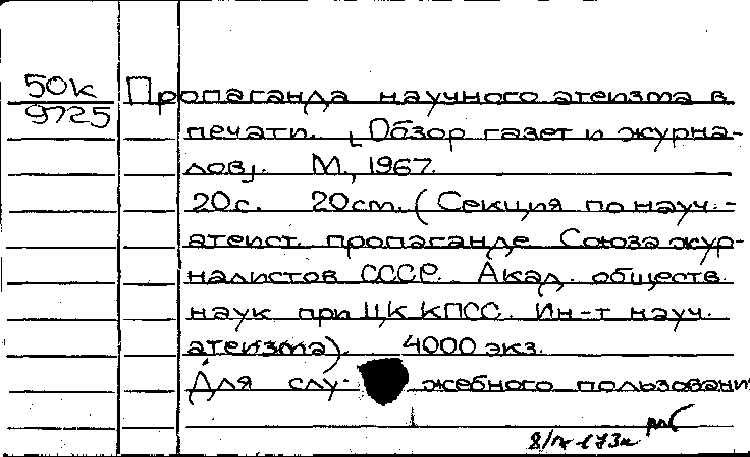 50к
9725
Пропаганда научного атеизма в
печати. [Обзор газет и журна-
лов]. М., 1967.
20с. 20см. (Секция по науч.-
атеист. пропаганде Союза жур-
налистов СССР. Акад. обществ.
наук при ЦК КПСС. Ин-т науч.
атеизма). 4000 экз.
Для слу- жебного пользовани